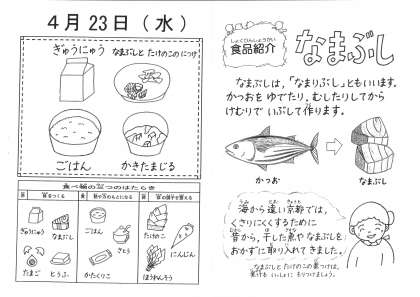 4月23日（水）
ぎゅうにゅう
なまぶしと たけのこの につけ
ごはん
かきたまじる
食べ物の三つのはたらき
ぎゅうにゅう
なまぶし
たまご
とうふ
ごはん
さとう
かたくりこ
たけのこ
にんじん
ほうれんそう
しょくひんしょうかい
食品紹介
なまぶし
なまぶしは，「なまりぶし」ともいいます。
かつおを ゆでたり，むしたりしてから
けむりで いぶして作ります。
かつお
なまぶし
海から遠い京都では，
くさりにくくするために
昔から，干した魚や なまぶしを
おかずに取り入れてきました。
「なまぶしと たけのこの煮つけ」は，